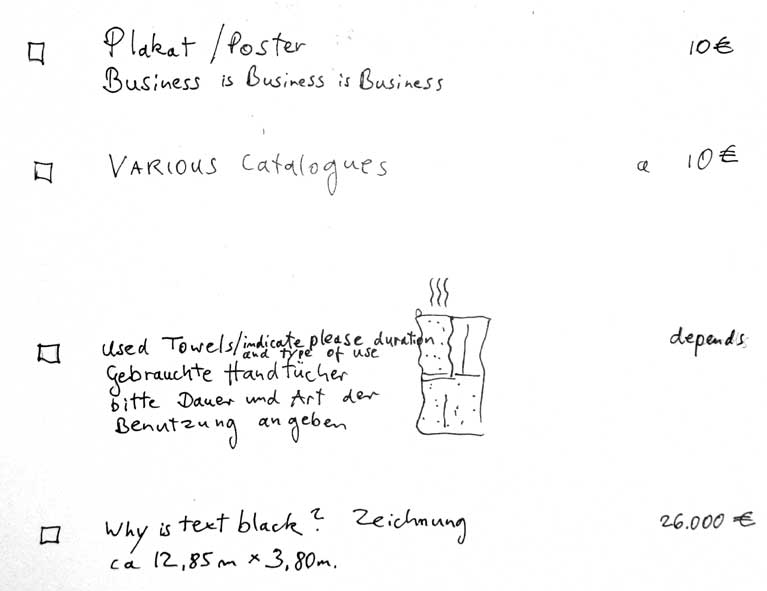 Plakat / Poster 10 €
Business is Business is Business
VARIOUS Catalogues a 10 €
Used Towels/indicate please duration depends
and type of use
Gebrauchte Handtücher
bitte Dauer und Art der
Benutzung angeben
Why is text black? Zeichnung 26.000 €
ca 12,85m × 3,80m.